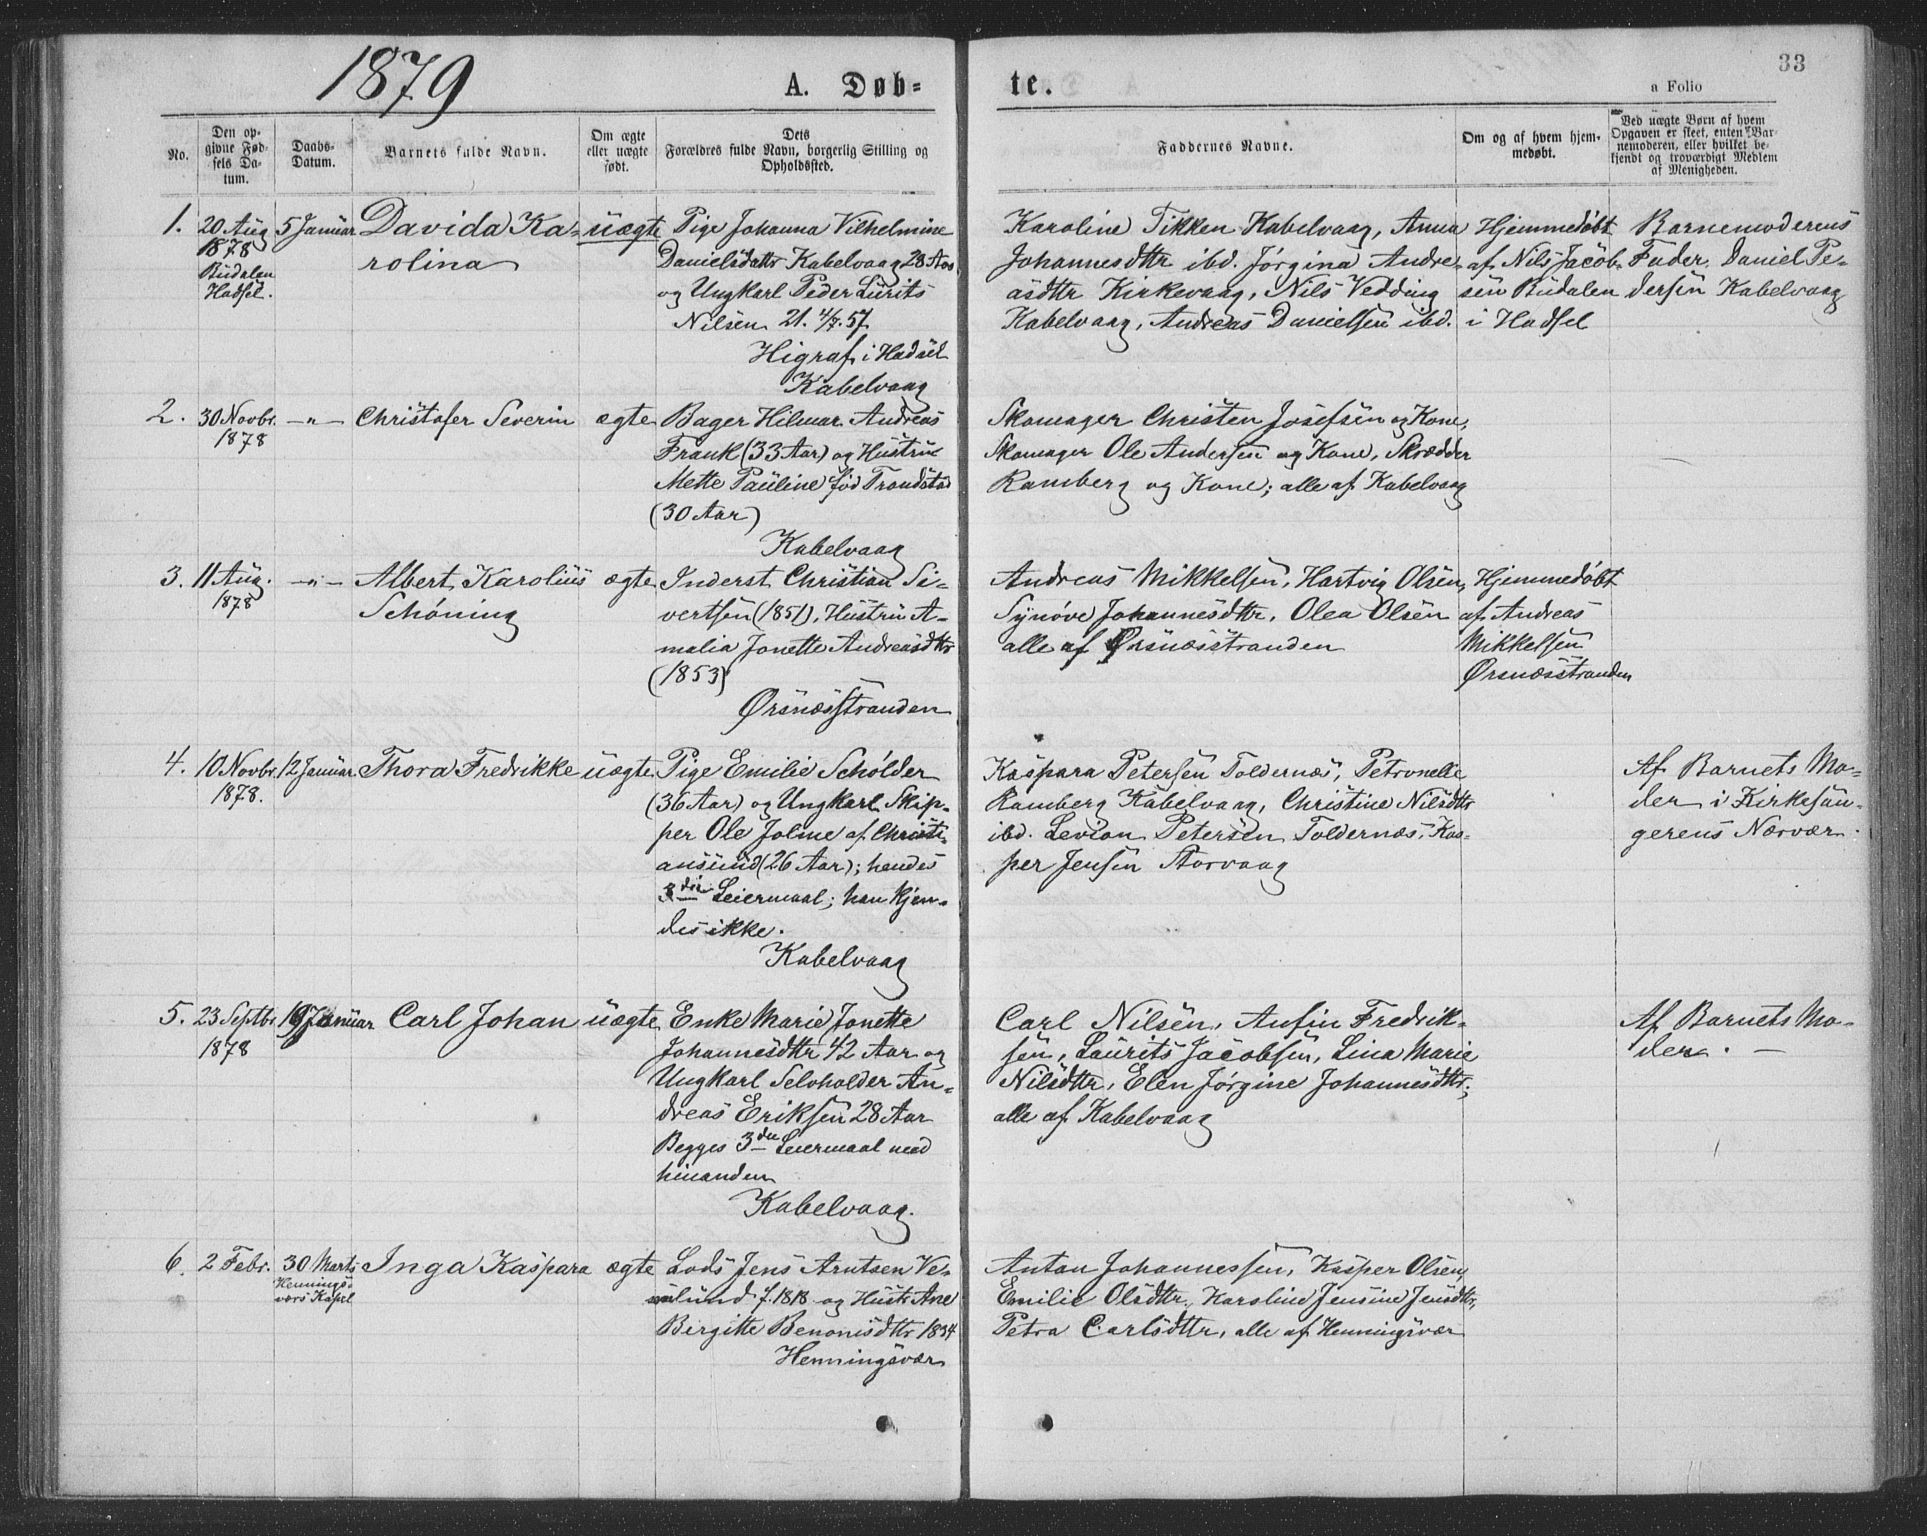 1879
A. Døb=
te.
33
a Folio
No.
Den op-
givne Fød-
sels Da-
tum.
Daabs-
Datum.
Barnets fulde Navn.
Om ægte
eller uægte
født.
Dets
Forældres fulde Navn, borgerlig Stilling og
Opholdssted.
Faddernes Navne.
Om og af hvem hjem-
medøbt.
Ved uægte Børn af hvem
Opgaven er skeet, enten Bar-
nemoderen, eller hvilket be-
kjendt og troværdigt Medlem
af Menigheden.
1.
20 Aug
1878
Budalen
Hadsel.
5 Januar
Davida Ka-
rolina
uægte
Pige Johanna Vilhelmine
Danielsdattr Kabelvaag 28 Aar
og Ungkarl Peder Lurits
Nilsen 21. 4/7. 57
Higraf i Hadsel
Kabelvaag
Karoline Tikken Kabelvaag, Anna
Johannesdttr ibd. Jørgina Andre-
asdttr Kirkevaag, Nils Vedding
Kabelvaag, Andreas Danielsen ibd.
Hjemmedøbt
af Nils Jacob-
sen Budalen
i Hadsel
Barnemoderens
Fader Daniel Pe-
dersen Kabelvaag
2.
30 Novbr.
1878
—"—
Christofer Severin
ægte
Bager Hilmar Andreas
Frank (33 Aar) og Hustru
Mette Pauline fød Trondstad
(30 Aar)
Kabelvaag
Skomager Christen Josefsen og Kone,
Skomager Ole Andersen og Kone, Skrædder
Ramberg og Kone; alle af Kabelvaag
3.
11 Aug.
1878
—"—
Albert Karolius
Schøning
ægte
Inderst Christian Si-
vertsen (1851), Hustru A-
malia Jonette Andreasdttr
(1853)
Ørsnæsstranden
Andreas Mikkelsen, Hartvig Olsen,
Synøve Johannesdttr, Olea Olsen
alle af Ørsnæsstranden
Hjemmedøbt
af Andreas
Mikkelsen
Ørsnæsstranden
4.
10 Novbr.
1878.
12 Januar
Thora Fredrikke
uægte
Pige Emilie Schølder
(36 Aar) og Ungkarl Skip-
per Ole Jolme af Christi-
ansund (26 Aar); hendes
3die Leiermaal; han kjen-
des ikke.
Kabelvaag
Kaspara Petersen Toldernæs, Petronelle
Ramberg Kabelvaag, Christine Nilsdttr
ibd. Levion Petersen Toldernæs, Kas-
per Jensen Storvaag
Af Barnets Mo-
der i Kirkesan-
gerens Nærvær.
5.
23 Septbr.
1878
19 Januar
Carl Johan
uægte
Enke Marie Jonette
Johannesdttr 42 Aar og
Ungkarl Selvholder An-
dreas Eriksen 28 Aar
Begges 3die Leiermaal med
hinanden
Kabelvaag.
Carl Nilsen, Anfin Fredrik-
sen, Laurits Jacobsen, Lina Marie
Nilsdttr, Elen Jørgine Johannesdttr;
alle af Kabelvaag
Af Barnets Mo-
der. —
6.
2 Febr.
30 Marts
Hennings-
værs Kapel
Inga Kaspara
ægte
Lods Jens Arntsen Ve-
lund f. 1818 og Hustr. Ane
Birgitte Benonisdttr 1834
Henningsvær
Anton Johannessen, Kasper Olsen,
Emilie Olsdttr, Karoline Jensine Jensdttr,
Petra Carlsdttr, alle af Henningsvær